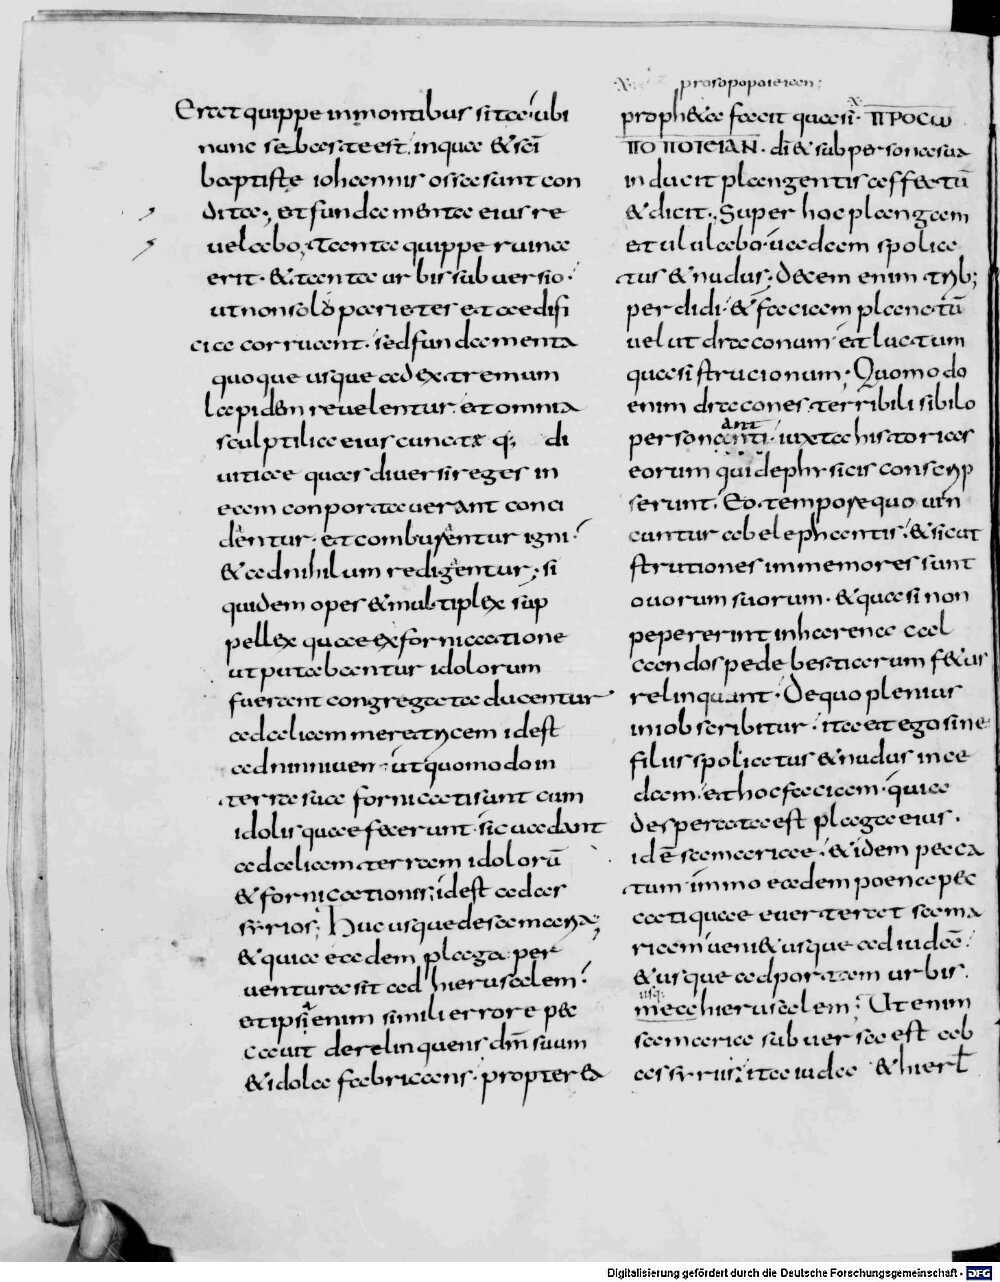 Erat quippe in montibus sita; ubi
nunc sebaste est. in qua & sc̄i
baptistę iohannis ossa sunt con
dita; et fundamenta eius re
uelabo; Tanta quippe ruina
erit. & tanta urbis subuersio.
ut non solū parietes et aedifi
cia corruant. sed fundamenta
quoque usque ad extremum
lapidem reuelentur. et omnia
sculptilia eius cuncta q; di
uitiae quas diuersi reges in
eam conportauerant conci
dentur. et comburentur igni.
& ad nihilum redigentur; si
quidem opes & multiplex sup
pellex quae ex fornicatione
ut puta beantur idolorum
fuerant congregata ducentur
ad aliam meretricem id est
ad niniuen. ut quomodo in
terra sua fornicati sunt cum
idolis quae fecerunt. sic uadant
ad aliam terram idolorū
& fornicationis; id est ad as
syrios; Huc usque de samaria;
& quia eadem plaga per
uentura sit ad hierusalem.
et ipsa enim simili errore pec
cauit derelinquens dm̄ suum
& idola fabricans. propterea
prosopopoieian;
proph&a facit quasi. ΠΡΟCω
ΠΟΠΟΙΕΙΑΝ. di & sub persona sua
inducit plangentis affectū
& dicit. Super hoc plangam
et ululabo. uadam spolia
tus & nudus. decem enim trib;
perdidi. & faciam planctū
uelut draconum. et luctum
quasi strucionum. Quomodo
enim dracones. terribili sibilo
ant
personanti. iuxta historias
eorum qui de physicis conscrip
serunt. Eo tempore quo uin
cuntur ab elephantis. & sicut
strutiones immemores sunt
ouorum suorum. & quasi non
pepererint in harena cal
candos pede bestiarum f&us
relinquant. De quo plenius
in iob scribitur. ita et ego sine
filiis spoliatus & nudus ince
dam. et hoc faciam. quia
desperata est plaga eius.
id ē samariae. & idem pecca
tum immo eadem poena pec
cati quae euerteret sama
riam ueni& usque ad iudā.
& usque ad portam urbis.
usq.
meae hierusalem; Ut enim
samaria subuersa est ab
assyriis; ita iuda & hierl̄
Digitalisierung gefördert durch die Deutsche Forschungsgemeinschaft - DFG